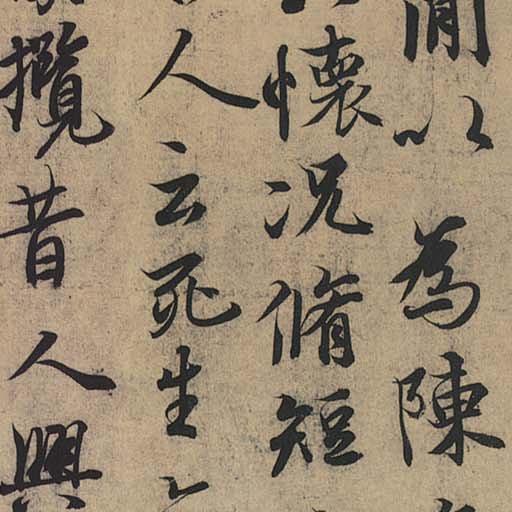 間以為陳
懷況脩短
人云死生
攬昔人興